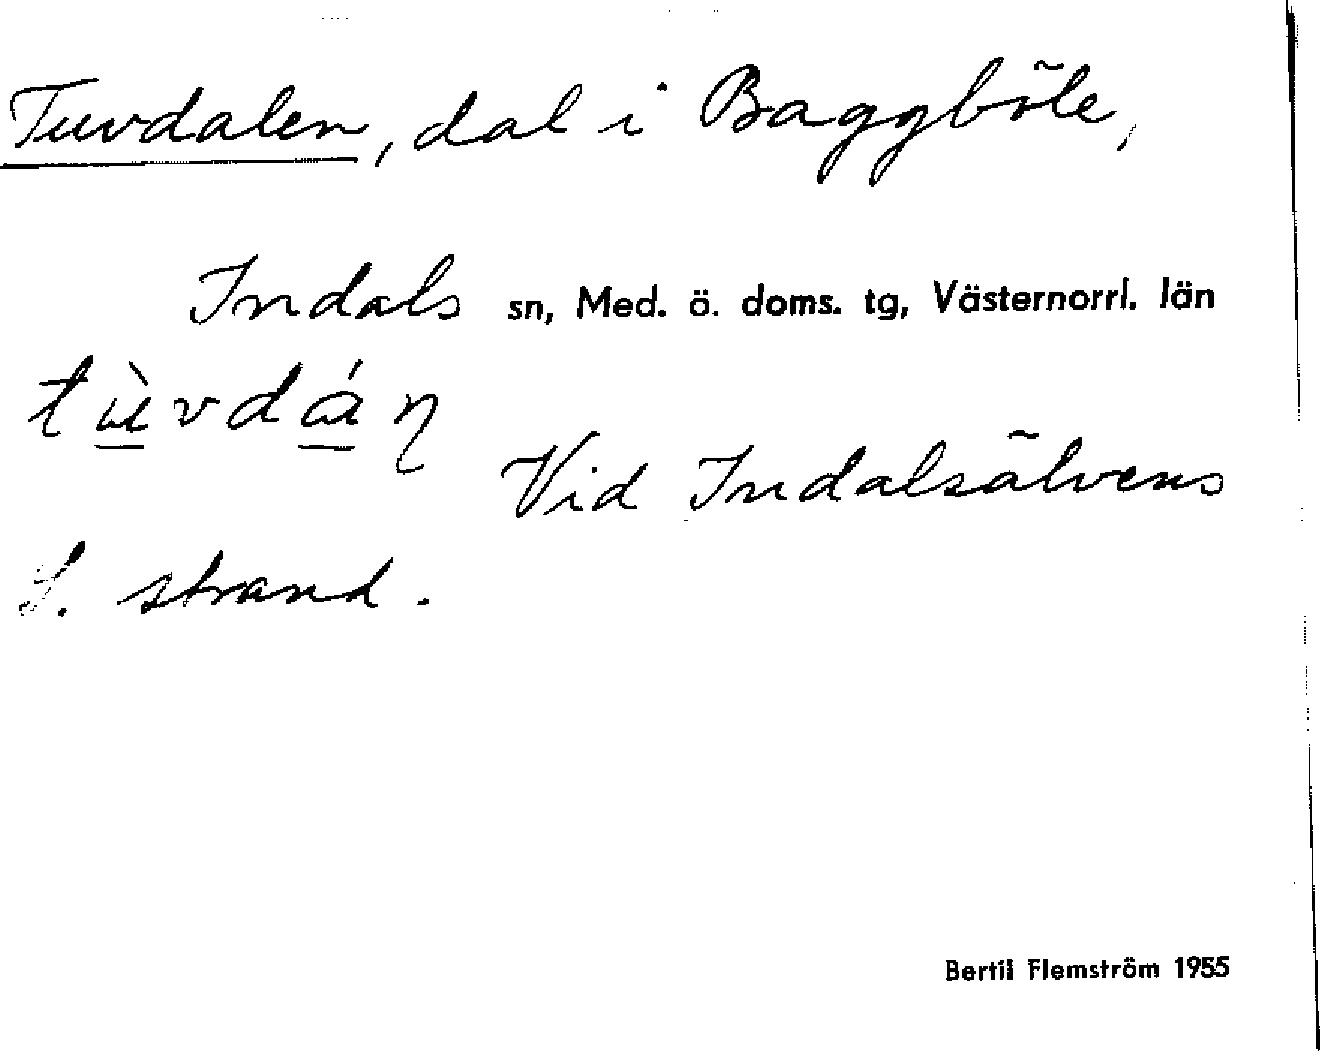 Tuvdalen, dal i Baggböle,
Indals sn, Med. ö. doms. tg, Västernorrl. län
tùvdáŋ
Vid Indalsälvens
S. strand.
Bertil Flemström 1955